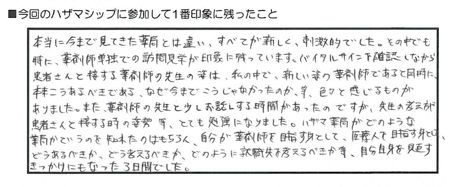 ■今回のハザマシップに参加して1番印象に残ったこと
本当に今まで見てきた薬局とは違い、すべてが新しく、刺激的でした。その中でも
特に、薬剤師単独での訪問見学が印象に残っています。バイタルサインを確認しながら
患者さんと接する薬剤師の先生の姿は、私の中で、新しい姿の薬剤師であると同時に、
本来こうあるべきである、なぜ今までこうしなかったのか、等、色々と感じるものが
ありました。また、薬剤師の先生と少しお話しする時間があったのですが、先生の考え方が
患者さんと接する時の姿勢 等、とても勉強になりました。ハザマ薬局がどのような
薬局かというのを知れたのはもちろん、自分が薬剤師を目指す身として、医療人を目指す身として、
どうあるべきか、どう考えるべきか、どのように就職先を考えるべきか等、自分自身を見直す
きっかけにもなった3日間でした。